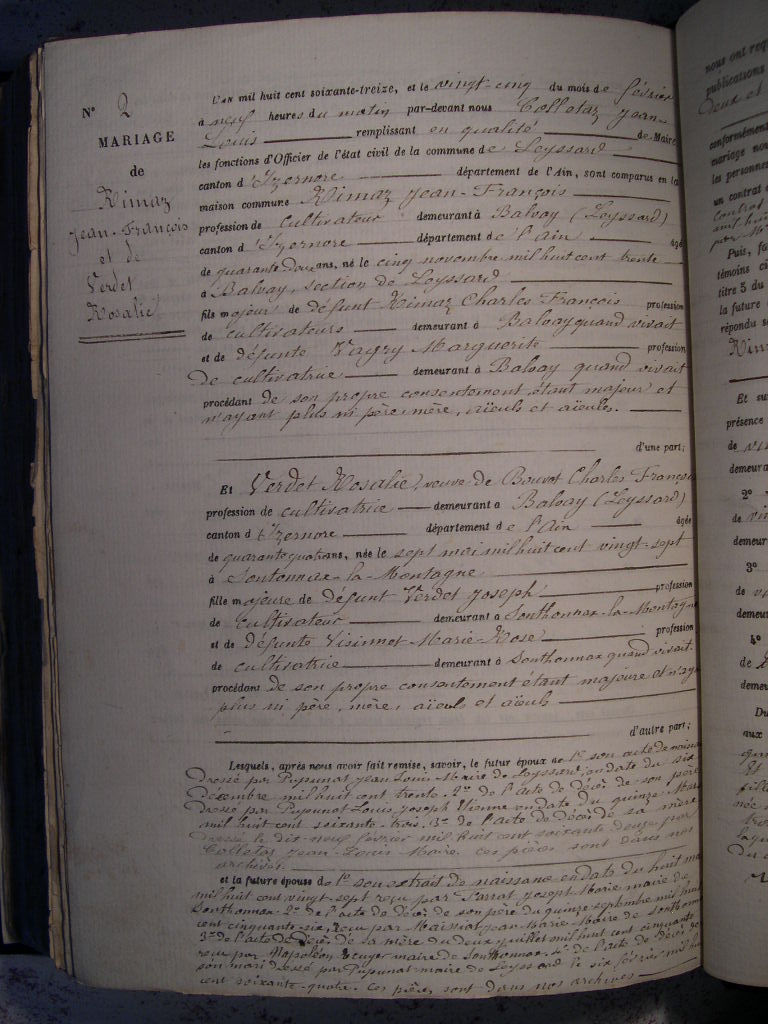 N° 2
MARIAGE
de
Rimaz
Jean-François
et de
Verdet
Rosalie
L'AN mil huit cent soixante-treize, et le vingt-cinq du mois de février
à neuf heures du matin par-devant nous Collotaz Jean-
Louis remplissant en qualité de Maire
les fonctions d'Officier de l'état civil de la commune de Leyssard
canton d'Izernore département de l'Ain, sont comparus en la
maison commune Rimaz Jean-François
profession de cultivateur demeurant à Balvay (Leyssard)
canton d'Izernore département de l'Ain âgé
de quarante deux ans, né le cinq novembre mil huit cent trente
à Balvay, section de Leyssard
fils majeur de défunt Rimaz Charles François profession
de cultivateurs demeurant à Balvay quand vivait
et de défunte Vagry Marguerite profession
de cultivatrice demeurant à Balvay quand vivait
procédant de son propre consentement, étant majeur et
n'ayant plus ni père, mère, aïeuls et aïeules.
d'une part;
Et Verdet Rosalie, veuve de Bouvot Charles François
profession de cultivatrice demeurant à Balvay (Leyssard)
canton d'Izernore département de l'Ain âgée
de quarante quatre ans, née le sept mai mil huit cent vingt-sept
à Sontonnax-la-Montagne
fille majeure de défunt Verdet Joseph profession
de cultivateur demeurant à Sonthonnax-la-Montagne
et de défunte Visinnot Marie-Rose profession
de cultivatrice demeurant à Sonthonnax quand vivait.
procédant de son propre consentement étant majeure et n'ay
plus ni père, mère, aïeuls et aïeuls
d'autre part;
Lesquels, après nous avoir fait remise, savoir, le futur époux de 1° son acte de naissance
dressé par Pupunat Jean Louis Maire de Leyssard, en date du six
décembre mil huit cent trente. 2° de l'acte de décès de son père
dressé par Pupunat Louis Joseph Etienne en date du quinze Mars
mil huit cent soixante-trois, 3° de l'acte de décès de sa mère
dressé le dix-neuf février mil huit cent soixante deux par
Collotaz Jean-Louis Maire. Ces pièces sont dans nos
archives.
et la future épouse de 1° son extrait de naissance en date du huit mai
mil huit cent vingt-sept reçu par Sarrat Joseph Marie maire de
Sonthonnax 2° de l'acte de décès de son père du quinze septembre mil huit
cent cinquante-six, reçu par Maissiat Jean-Marie Maire de Sonthonnax
3° de l'acte de décès de sa mère du deux juillet mil huit cent cinquante
reçu par Napoléon maire de Sonthonnax, 4° de l'acte de décès de
son mari dressé par Pupunat maire de Leyssard le six février mil hui
cent soixante-quatre. Ces pièces sont dans nos archives
nous ont req
publications
deux et
conformémen
mariage nou
les personne
un contrat
contrat
mil hui
par M
Puis, fo
témoins ci
titre 5 du
la future
répondu s
Rim
Et su
présence
de
demeura
2°
de
demeur
3°
de
demeu
4°
de
deme
Du
aux